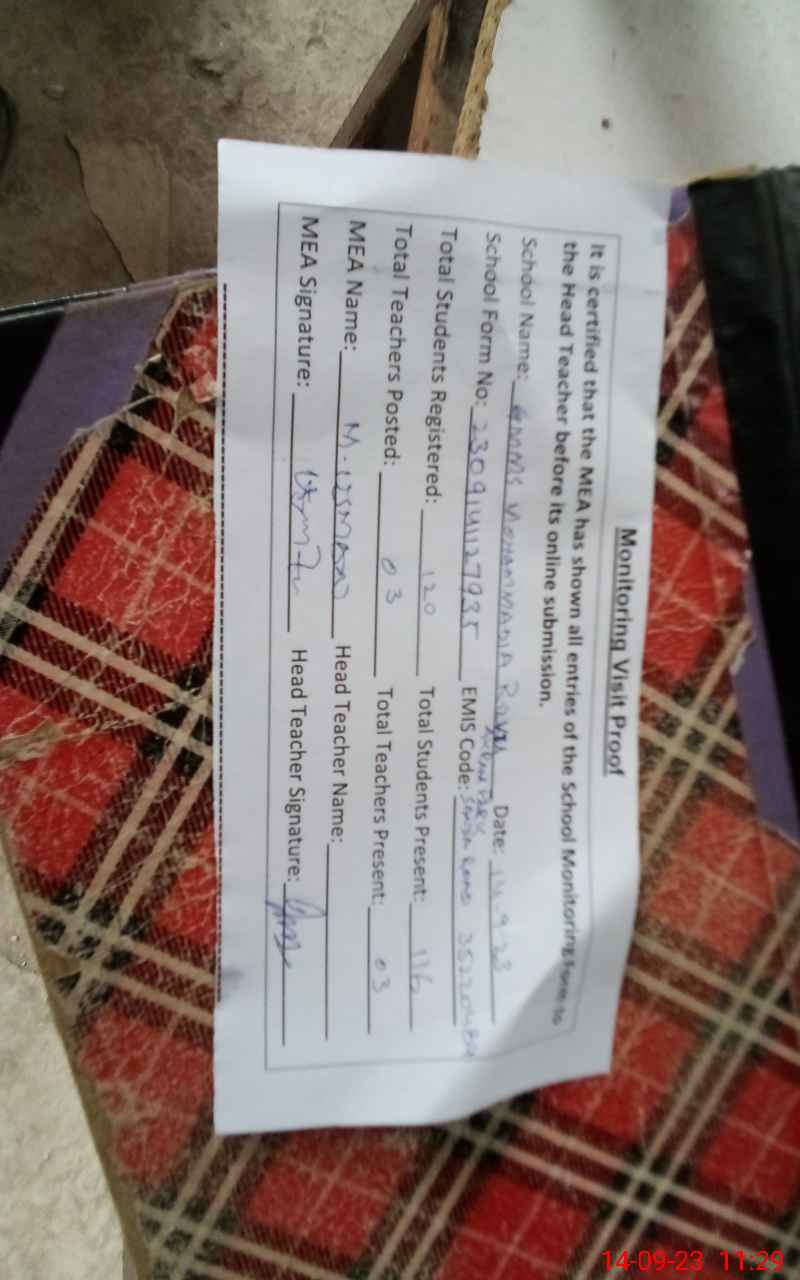 Monitoring Visit Proof
It is certified that the MEA has shown all entries of the School Monitoring Form to
the Head Teacher before its online submission.
School Name: GMMS MOHAMMADIA Date: 14.9.23
School Form No: EMIS Code:
Total Students Registered: 120 Total Students Present: 116
Total Teachers Posted: 03 Total Teachers Present: 03
MEA Name: M. USMAN Head Teacher Name:
MEA Signature: Head Teacher Signature:
14-09-23 11:29